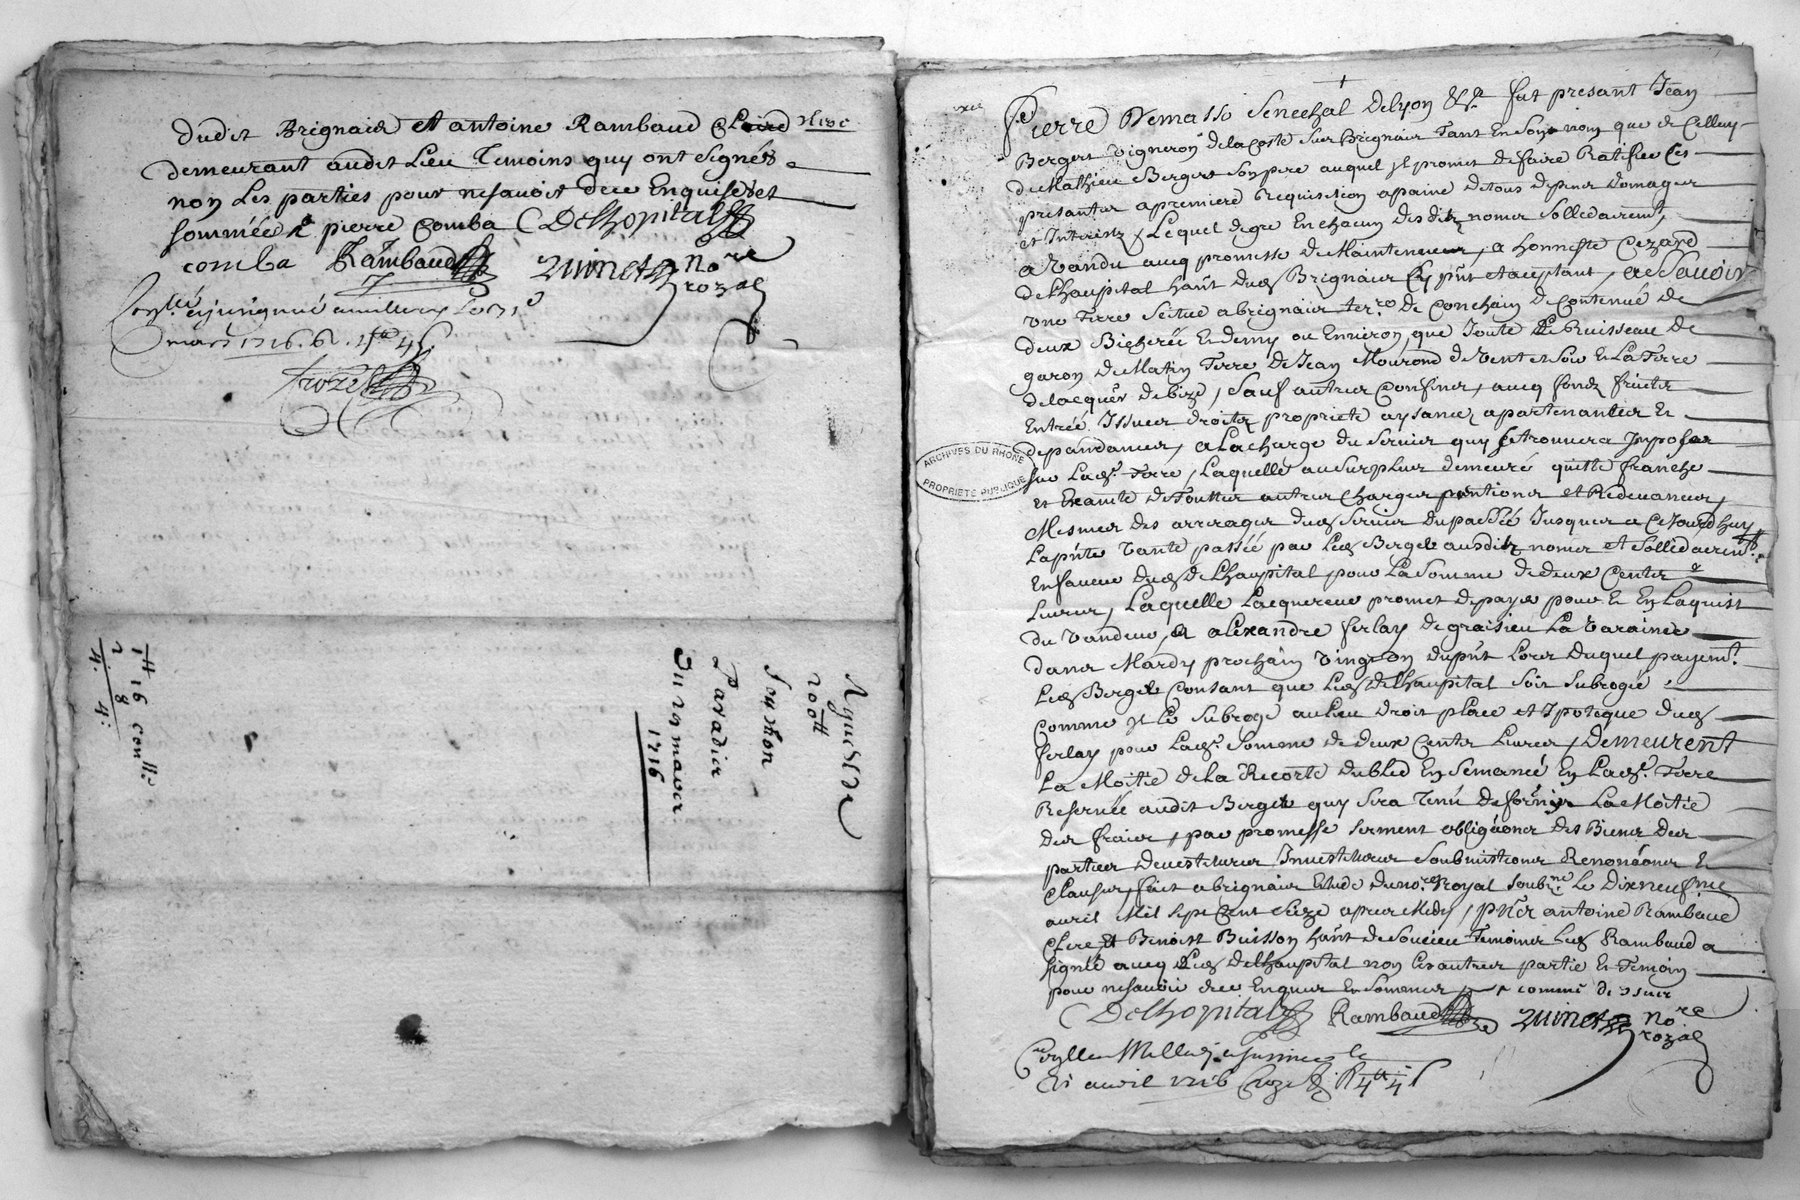 dudit Brignais et antoine Rambaud Clerc
demeurant audit Lieu Temoins quy ont Signés
non Les parties pour nesavoir dece Enquises et
sommées pierre Comba Delhopital
comba Rambaud Quinet No.re
rozal
mars 1716
aquis de
200 ₶
Paradier
Du 29 mars
1716
₶ 16
2 8
4. 4.
con.lle
Pierre Demasso Senechal Delyon &.a fut presant Jean
Bergert vigneron delacoste sur Brignais Tant En Son nom que de Celluy
de Mathieu Bergert Son pere auquel jl promet de faire Ratifier Ces
presantes a premiere Requisition apaine detous depens domages
et Interestz, Lequel degre En chacun desditz nomes Sollidairemt,
a Vandu avecq promesse de Maintenement, a honneste Cezard
delhaupital hant dud Brignais Cy pñt et aceptant, a Sauoir
Une Terre Scitue a brignais ter.ro de Conchain de Contenué de
deux Bicherée Et demy ou Enuiron, que Joute Le Ruisseau de
garon de Matin Terre de Jean Mourond de Vent et Soir Et La Terre
delacquer de bize, Sauf autres Confins, avecq fondz fruicts
Entrée Issues droitz proprieté aysances apartenances Et
depandances, a La charge du Servis quy se trouuera Jmposer
sur Lad. Terre, Laquelle au Surplus demeure quitte franche
et Exante de Touttes autres charges pentions et Redeuances,
Mesmes des arrerages dud Servis du passée Jusques a Cejourdhuy
La pñte Vante passée par Led Bergert ausditz nomes et Sollidairemt
En faueur dud delhaupital pour La Somme de deux Cents
Liures, Laquelle Lacquereur promet de payer pour Et En Laquist
du Vandeur, a alexandre ferlay de graisieu La Varainne
dans Mardy prochain Vingt on du pñt Lors Duquel payemt
Led Bergert Consant que Led delhaupital Soit Subrogé
Comme jl Le Subroge au Lieu droit place et Ipoteque dud
ferlay pour Lad. Somme de deux Cents Liures, Demeurent
La Moitie de la Recorte du bled En Semancé En Lad. Terre
Reservée audit Bergert quy Sera Tenu de fornir La Moitie
des fraix, par promesse Serment obligãons des Biens des
parties deuestitures Inuestitures Soubmistions Renonçãons Et
Clauses, fait a brignais Etude du no.re Royal Soub.né Le Dixneufme
auril Mil Sept Cent Seize apres Midy, pñts antoine Rambaud
Clerc Et Benoist Buisson hant de Soucieu Temoins Led Rambaud a
signé avecq Led Delhaupital non Les autres partie Et Temoin
pour nesauoir dece Enquis Et Sommes, comme dessus
Delhopital Rambaud Quinet No.re
rozal
21 auril 1716
ARCHIVES DU RHONE
PROPRIETE PUBLIQUE